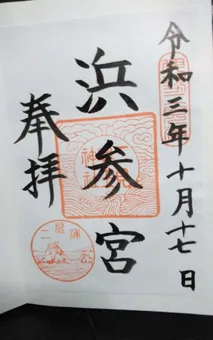 令和三年十月十七日
浜参宮
奉拝